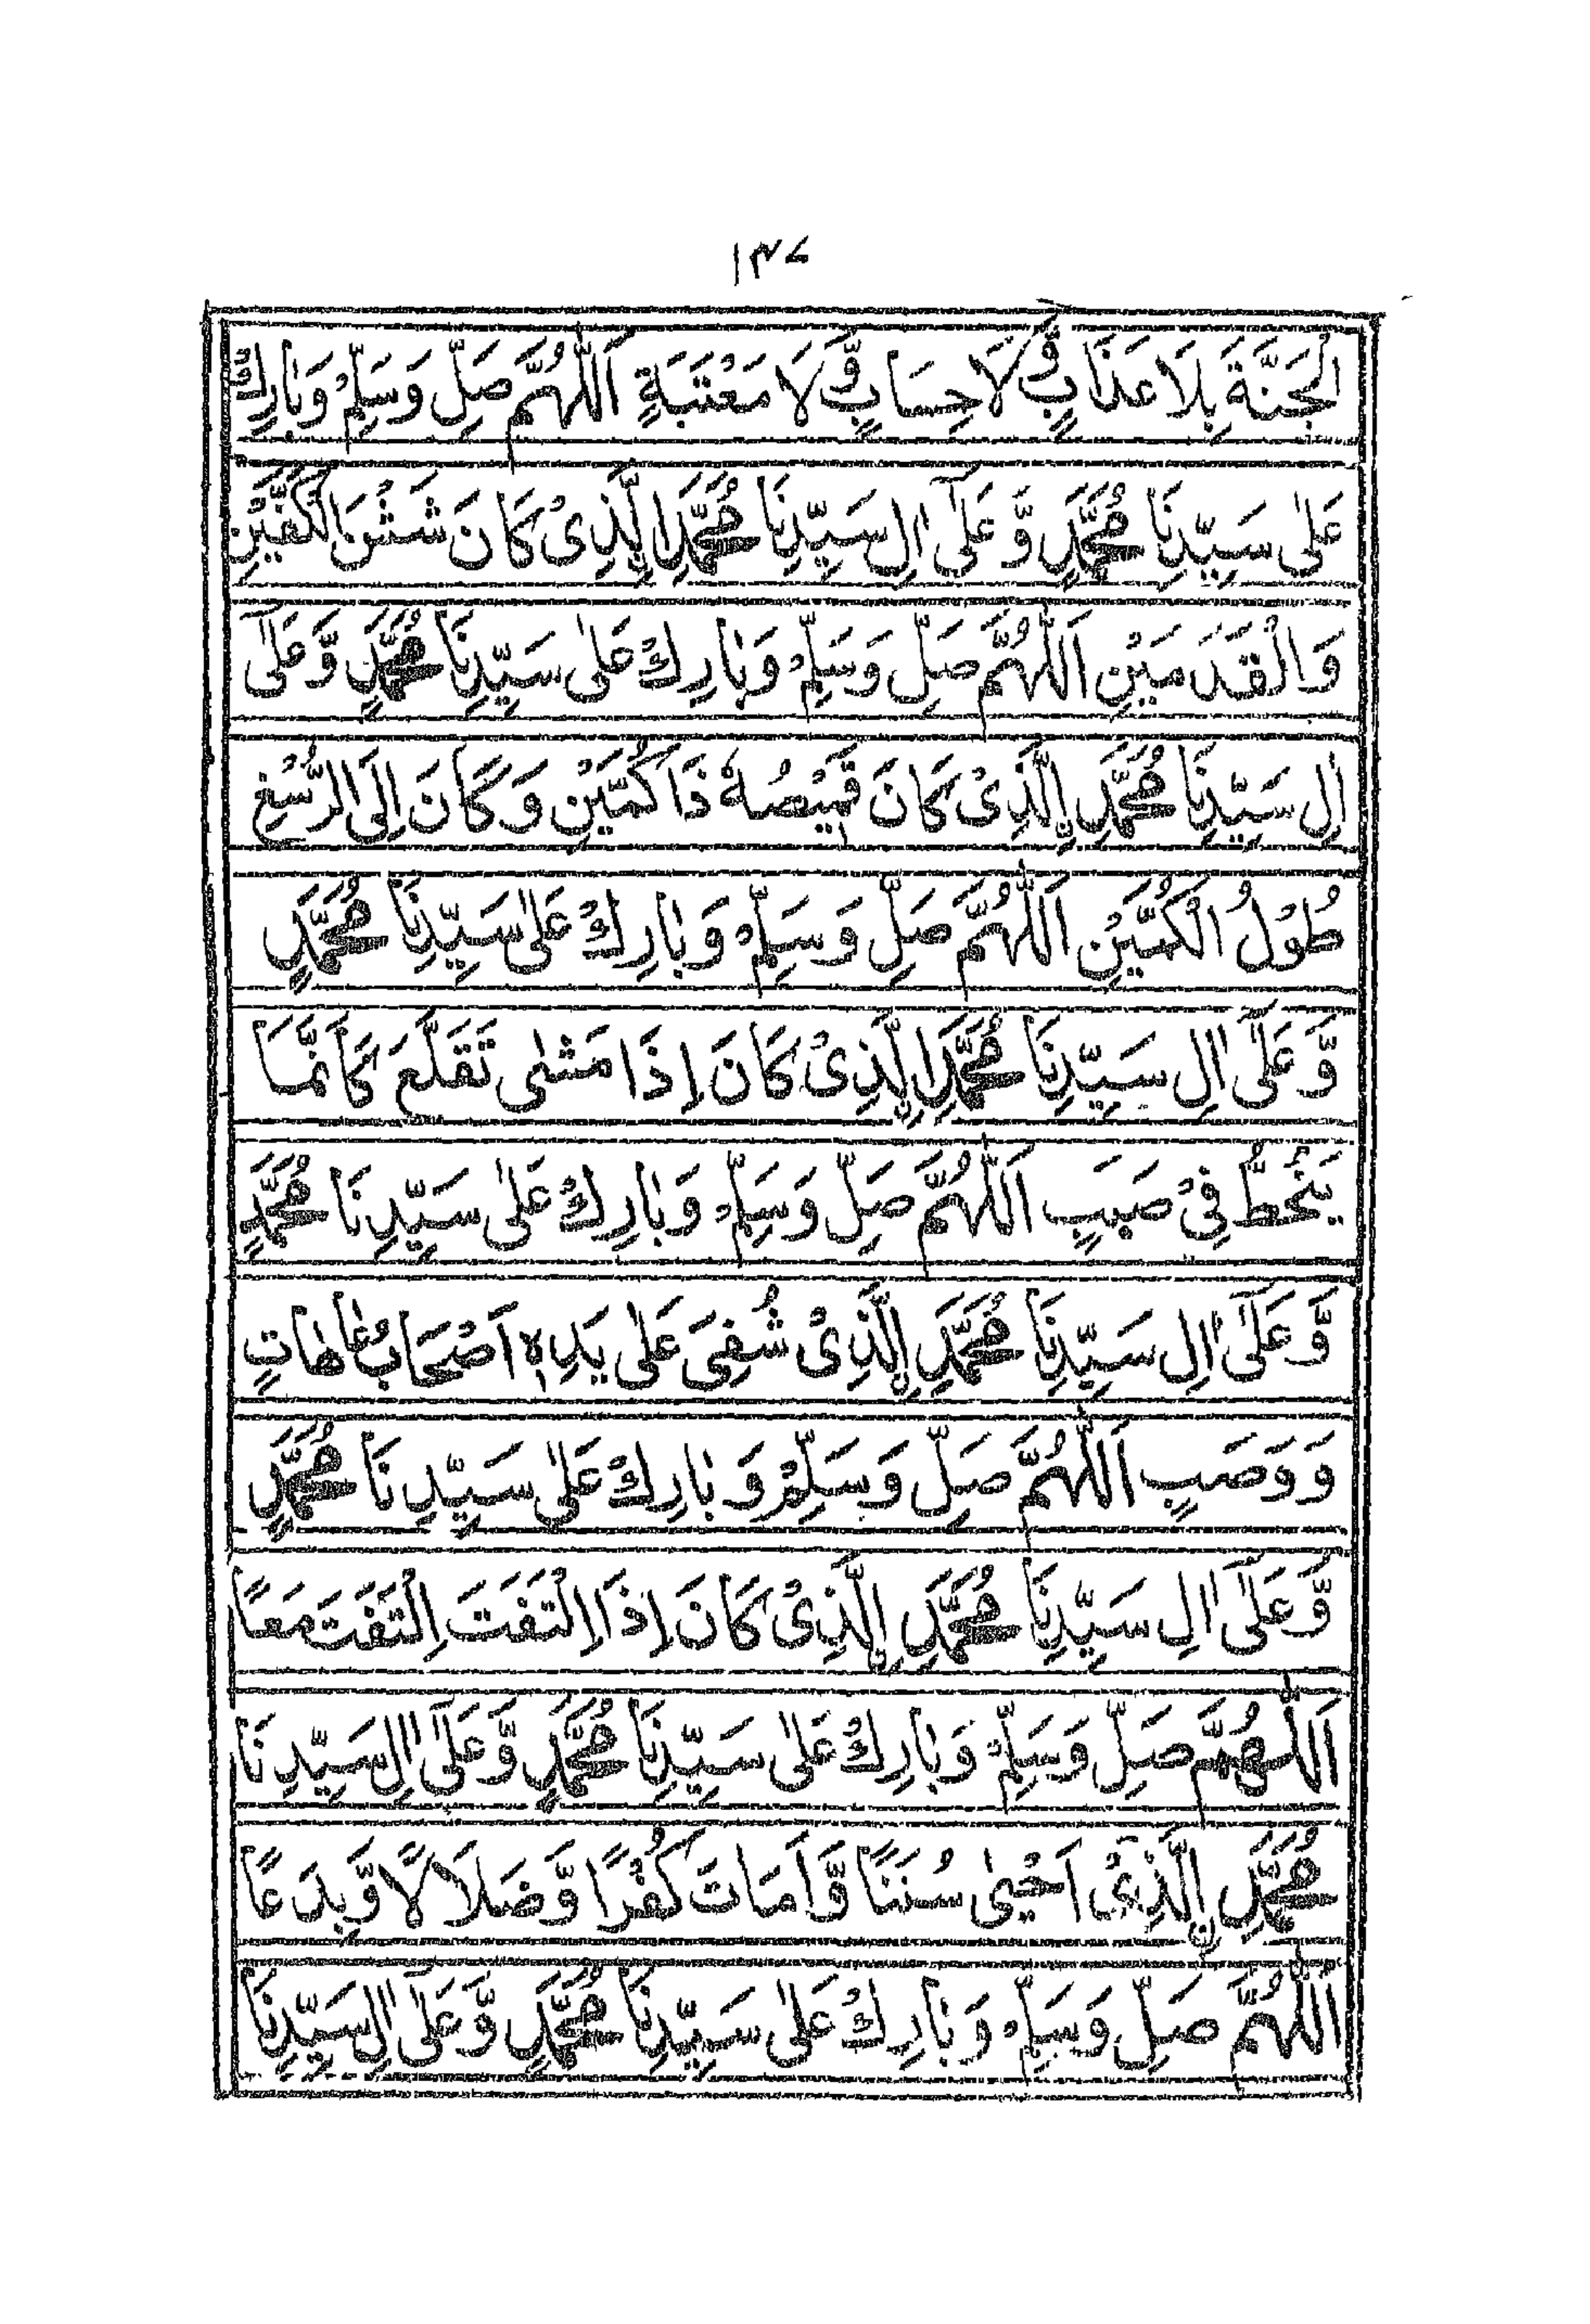 ١٣٧
الْجَنَّةَ بِلَا عَذَابٍ وَّ لَا حِسَابٍ وَّ لَا مَعْتَبَةٍ اَللّٰهُمَّ صَلِّ وَسَلِّمْ وَبَارِكْ
عَلٰى سَيِّدِنَا مُحَمَّدٍ وَّ عَلٰٓى اٰلِ سَيِّدِنَا مُحَمَّدِ الَّذِىْ كَانَ شَثْنَ الْكَفَّيْنِ
وَالْقَدَمَيْنِ اَللّٰهُمَّ صَلِّ وَسَلِّمْ وَبَارِكْ عَلٰى سَيِّدِنَا مُحَمَّدٍ وَّعَلٰٓى
اٰلِ سَيِّدِنَا مُحَمَّدِ نِ الَّذِىْ كَانَ قَمِيْصُهٗ ذَا كُمَّيْنِ وَكَانَ اِلَى الرُّسْغِ
طُوْلُ الْكُمَّيْنِ اَللّٰهُمَّ صَلِّ وَسَلِّمْ وَبَارِكْ عَلٰى سَيِّدِنَا مُحَمَّدٍ
وَّعَلٰٓى اٰلِ سَيِّدِنَا مُحَمَّدِ الَّذِىْ كَانَ اِذَا مَشٰى تَقَلَّعَ كَاَنَّمَا
يَنْحَطُّ فِىْ صَبَبٍ اَللّٰهُمَّ صَلِّ وَسَلِّمْ وَبَارِكْ عَلٰى سَيِّدِنَا مُحَمَّدٍ
وَّعَلٰٓى اٰلِ سَيِّدِنَا مُحَمَّدِ نِ الَّذِىْ شُفِىَ عَلٰى يَدِهٖ اَصْحَابُ عَاهَاتٍ
وَوَصَبٍ اَللّٰهُمَّ صَلِّ وَسَلِّمْ وَبَارِكْ عَلٰى سَيِّدِنَا مُحَمَّدٍ
وَّعَلٰٓى اٰلِ سَيِّدِنَا مُحَمَّدِ نِ الَّذِىْ كَانَ اِذَا الْتَفَتَ اِلْتَفَتَ مَعًا
اَللّٰهُمَّ صَلِّ وَسَلِّمْ وَبَارِكْ عَلٰى سَيِّدِنَا مُحَمَّدٍ وَّعَلٰٓى اٰلِ سَيِّدِنَا
مُحَمَّدِ نِ الَّذِىْ اَحْيٰى سُنَنًا وَّاَمَاتَ كُفْرًا وَّضَلَالًا وَّبِدَعًا
اَللّٰهُمَّ صَلِّ وَسَلِّمْ وَبَارِكْ عَلٰى سَيِّدِنَا مُحَمَّدٍ وَّعَلٰٓى اٰلِ سَيِّدِنَا